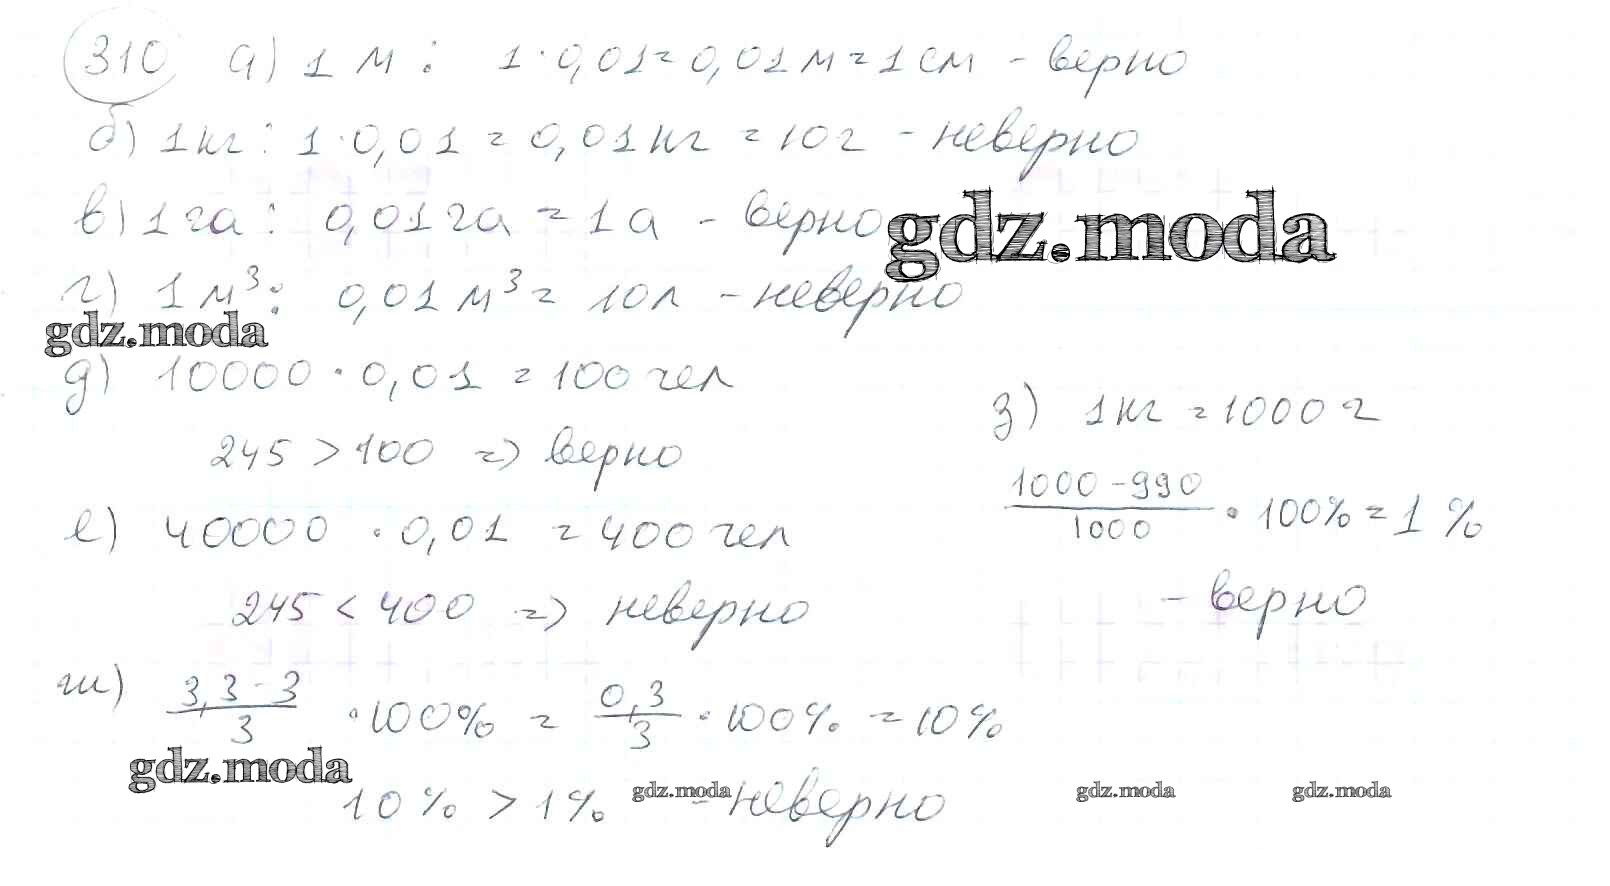 310 а) 1 м : 1·0,01=0,01м=1см - верно
б) 1кг : 1·0,01=0,01кг=10г - неверно
в) 1га : 0,01га=1а - верно
gdz.moda
г) 1м³ : 0,01м³=10л - неверно
gdz.moda
д) 10000·0,01=100 чел
245>100 => верно
е) 40000·0,01=400 чел
245<400 => неверно
ж) (3,3-3)/3 ·100% = 0,3/3 ·100% = 10%
gdz.moda
10%>1% - неверно
gdz.moda
з) 1кг=1000г
(1000-990)/1000 ·100%=1%
- верно
gdz.moda
gdz.moda